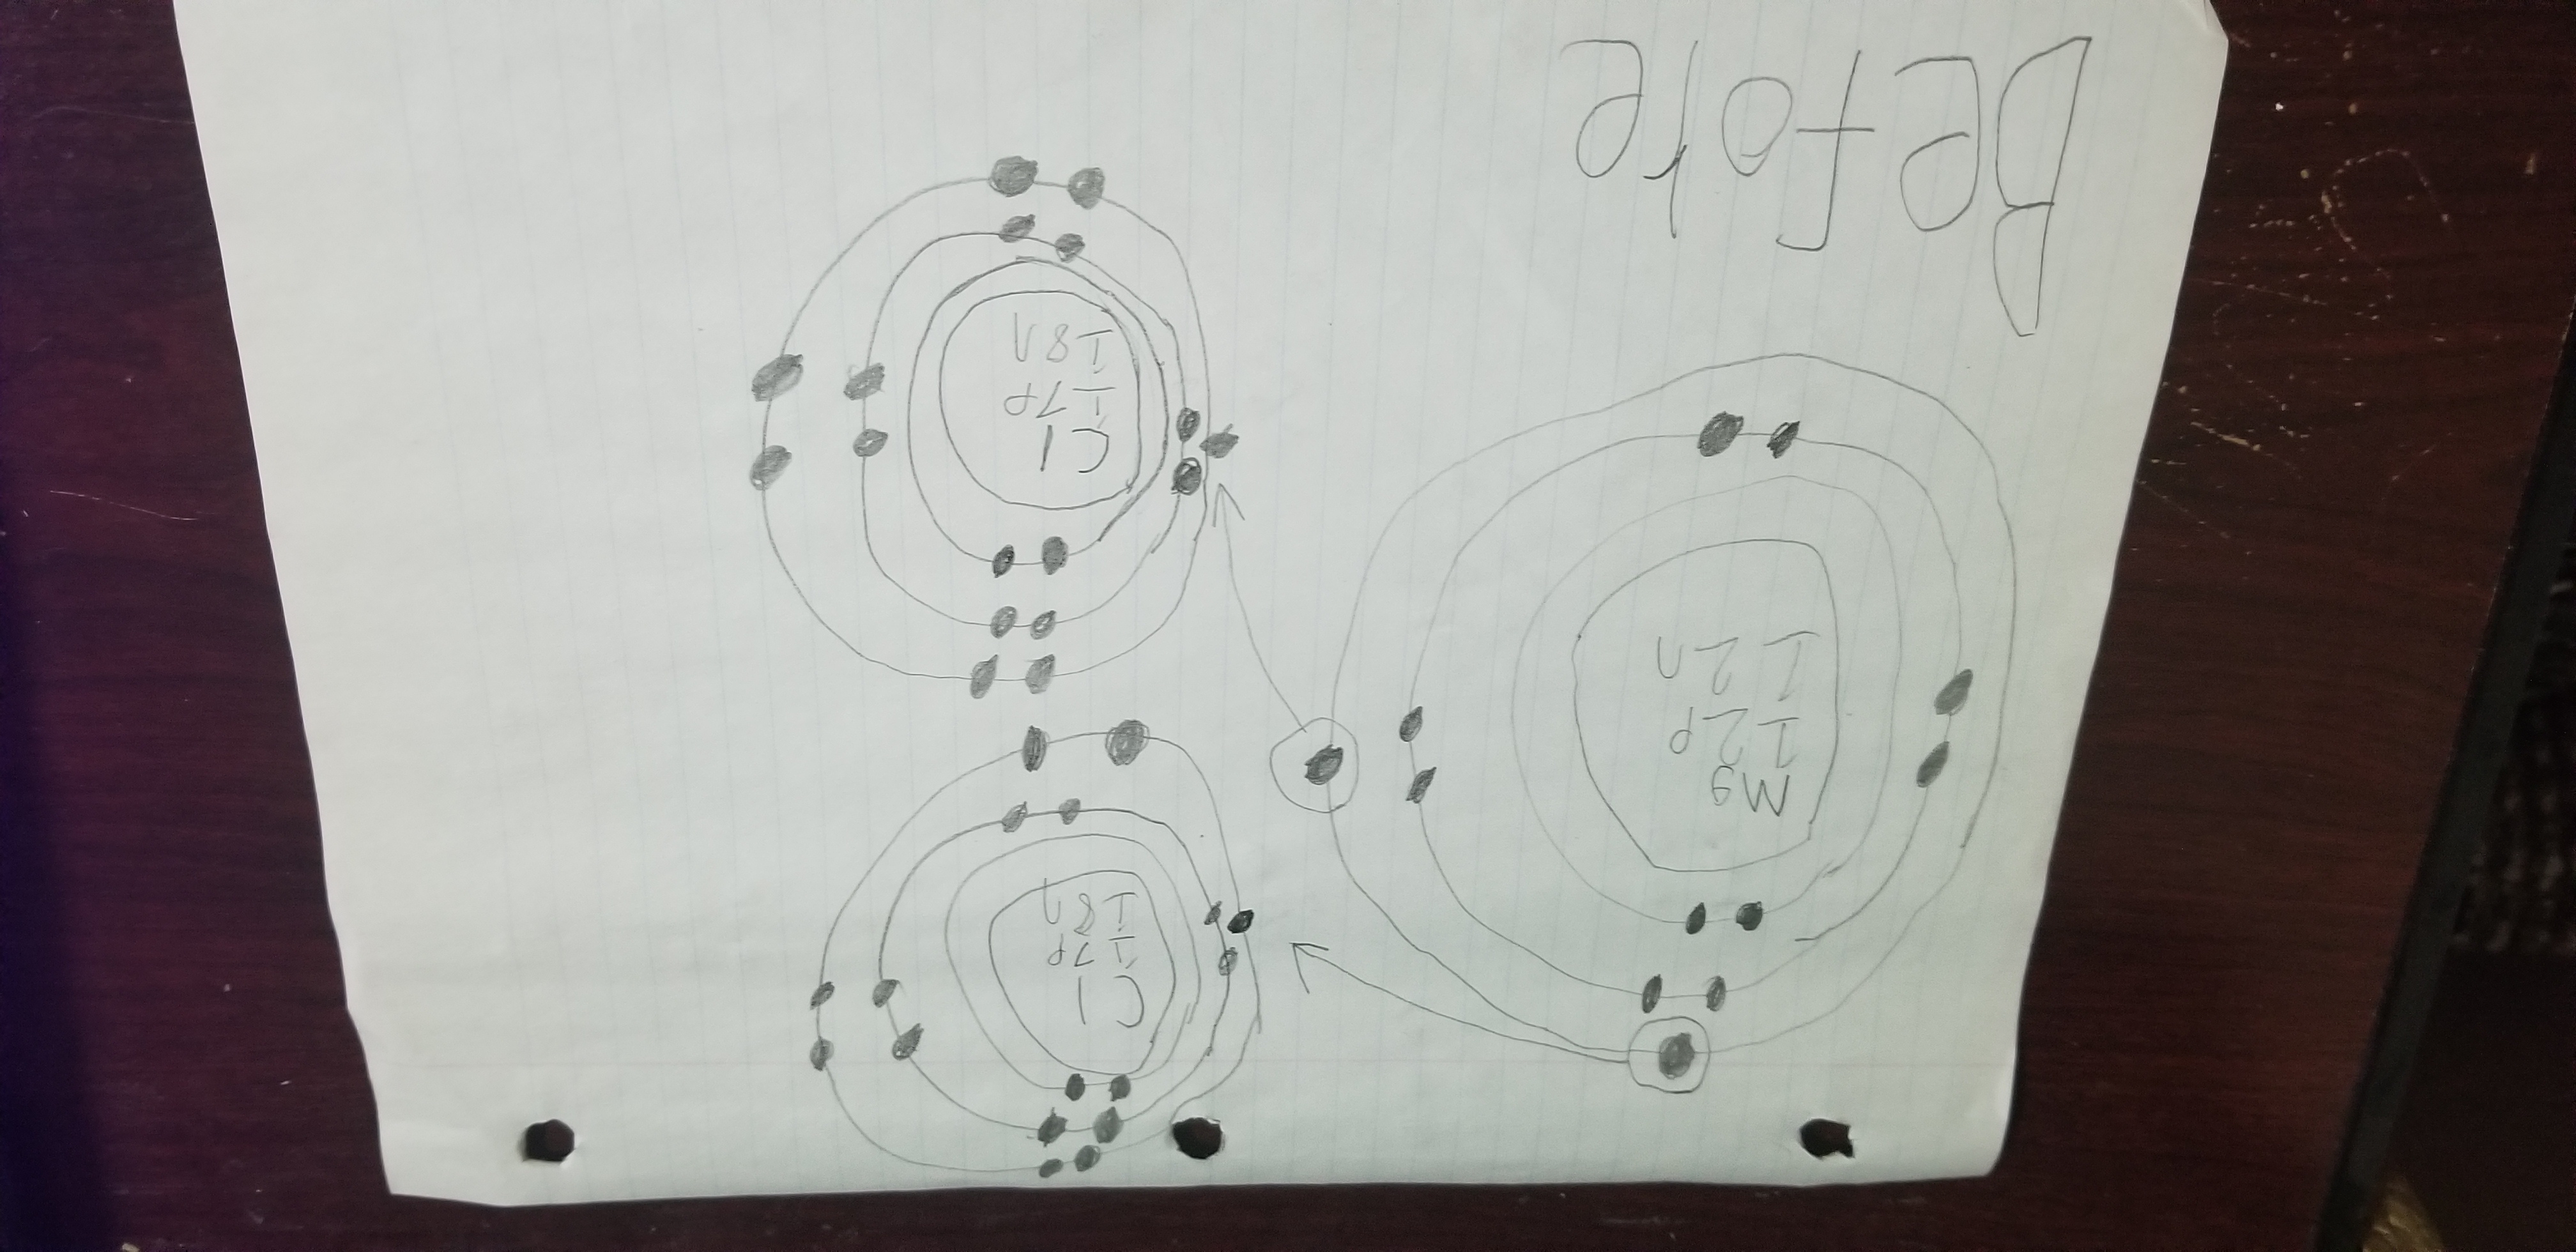 Mg
12p
12n
Cl
17p
18n
Cl
17p
18n
Before